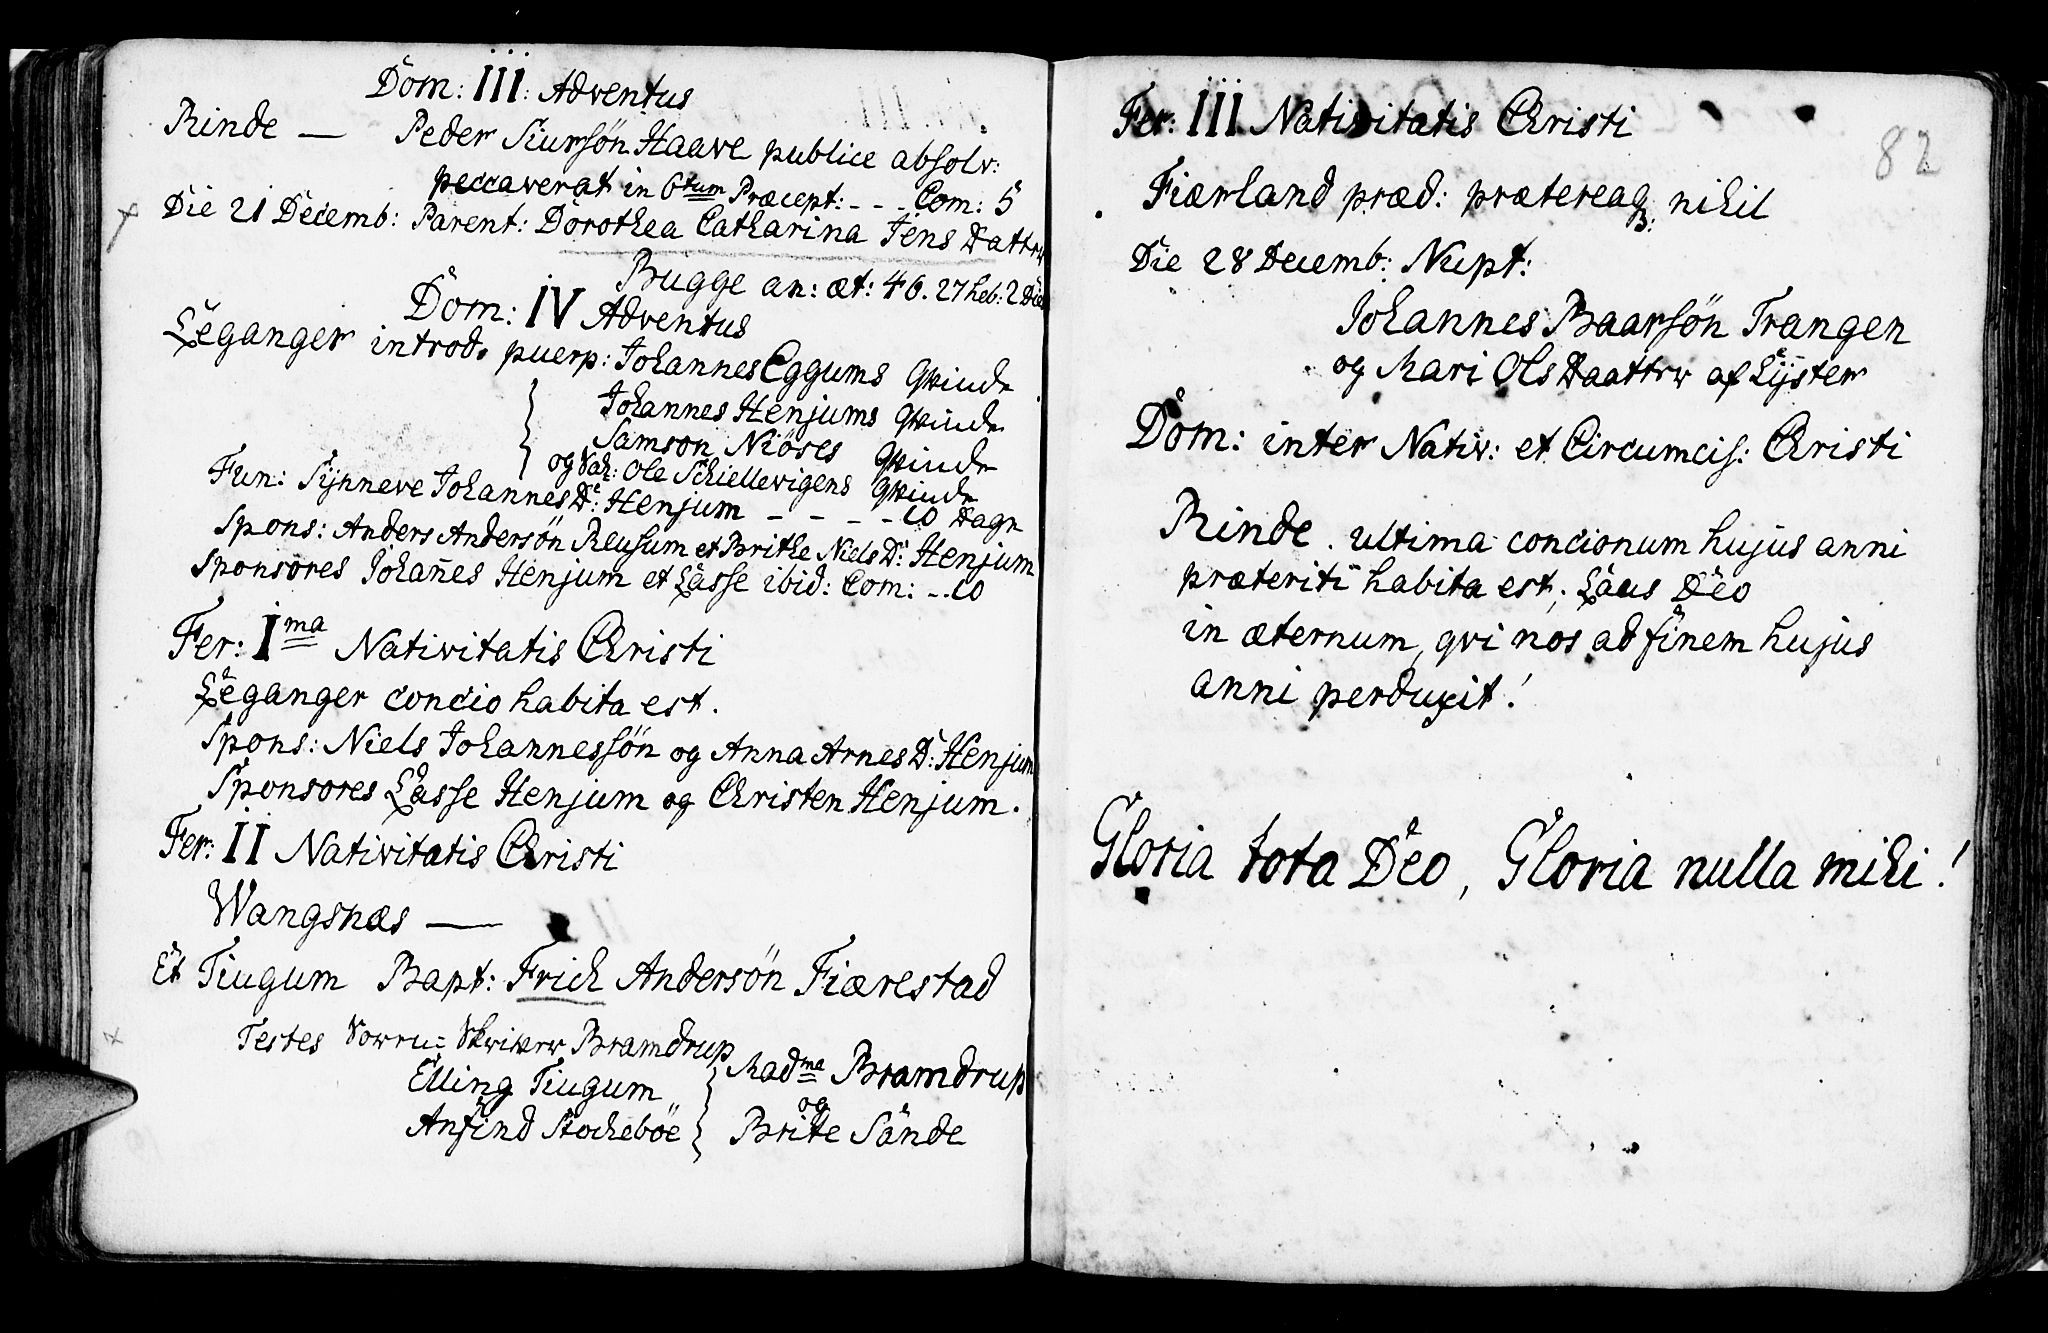 Dom: III: Adventus
Rinde — Peder Siursön Haave publice absolv:
peccaverat in 6tum Præcept: - - - Com: 5
Die 21 Decemb: Parent: Dorothea Catharina Jens Dattrr
Bugge an: æt: 46. 27 heb: 2 Die
Dom: IV Adventus
Leganger introd. puerp: Johannes Eggums Qvinde
Johannes Henjums Qvinde
Samson Niöses Qvinde
og Sah: Ole Schiellevigens Qvinde
Fun: Synneve Johannes D: Henjum - - - - 10 Dage
Spons: Anders Andersön Reusum et Brithe Niels D: Henjum
Sponsores Joha͞nes Henjum et Lasse ibid: Com: - . 10
Fer: Ima Nativitatis Christi
Leganger concio habita est.
Spons: Niels Johannessön og Anna Arnes D: Henjum
Sponsores Lasse Henjum og Christen Henjum.
Fer: II Nativitatis Christi
Wangsnæs —
Et Tiugum Bapt: Frich Andersön Fiærestad
Testes Sorren-Skriverr Bramdrup
Elling Tiugum
Anfind Stocheböe
Madme Bramdrup
og
Brite Sande
82
Fer: III Nativitatis Christi
Fiærland præd: prætereaq; nihil
Die 28 Decemb: Nupt:
Johannes Baarsön Trangen
og Mari Ols Daattrr af Lyster
Dom: inter Nativ: et Circumcis: Christi
Rinde. ultima concionum hujus anni
præteriti habita est; Laus Deo
in æternum, qvi nos ad finem hujus
anni perduxit!
Gloria tota Deo, Gloria nulla mihi!